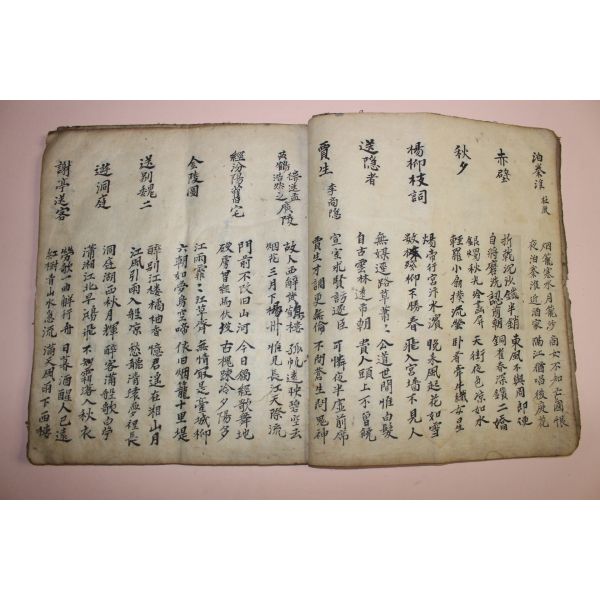 泊秦淮 杜牧
烟籠寒水月籠沙 商女不知亡國恨
夜泊秦淮近酒家 隔江猶唱後庭花
赤壁
折戟沉沙鐵半銷 東風不與周郎便
自將磨洗認前朝 銅雀春深鎖二喬
秋夕
銀燭秋光冷畵屏 天街夜色凉如水
輕羅小扇撲流螢 臥看牽牛織女星
楊柳枝詞
煬帝行宮汴水濱 晚來風起花如雪
數株殘柳不勝春 飛入宮墻不見人
送隱者
無媒逕路草蕭〻 公道世間惟白髮
自古雲林遠市朝 貴人頭上不曾饒
賈生 李商隱
宣室求賢訪逐臣 可憐夜半虛前席
賈生才調更無倫 不問蒼生問鬼神
黃鶴樓送孟浩然之廣陵
故人西辭黃鶴樓 孤帆遠映碧空去
烟花三月下楊州 惟見長江天際流
經汾陽舊宅
門前不改旧山河 今日獨經歌舞地
破虜曾經馬伏波 古槐踈冷夕陽多
金陵圖
江雨霏〻江草齊 無情最是臺城柳
六朝如夢鳥空啼 依旧烟籠十里堤
送別魏二
醉別江楼橘柚香 憶君遥在湘山月
江風引雨入船凉 愁聽清猿夢裡長
遊洞庭
洞庭湖西秋月輝 醉客滿船歌白苧
瀟湘江北早鴻飛 不知霜露入秋衣
謝亭送客
勞歌一曲解行舟 日暮酒醒人已遠
紅樹青山水急流 滿天風雨下西樓